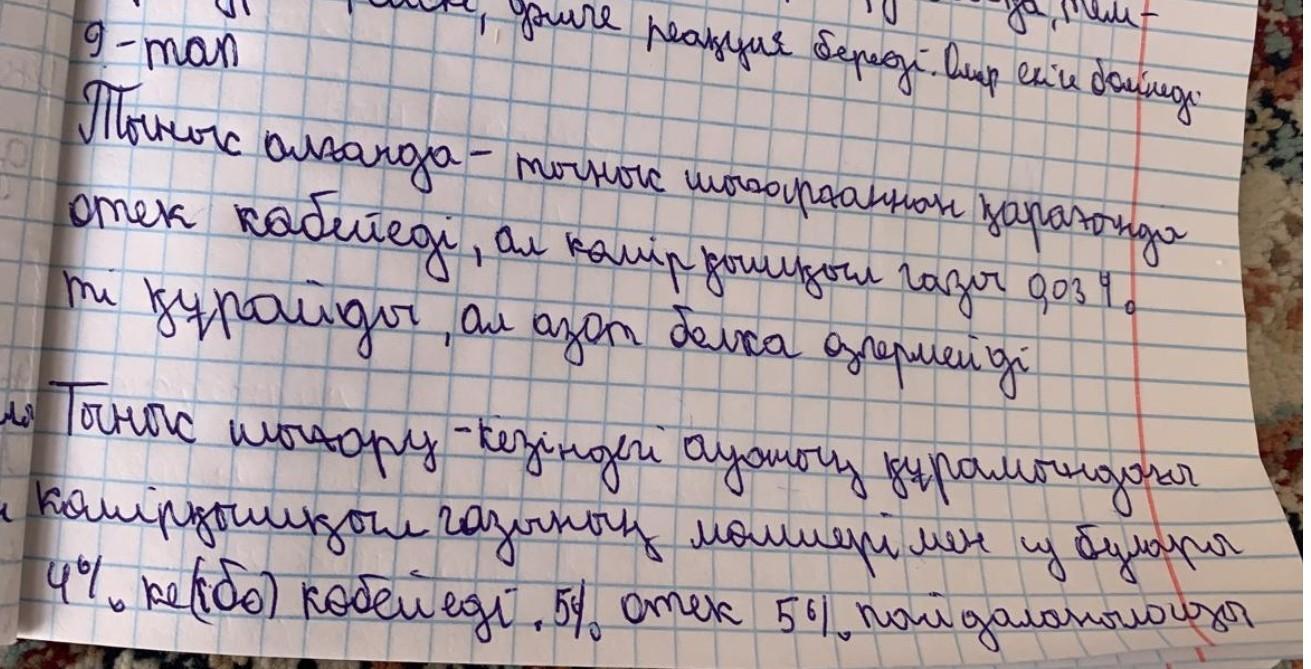 реакция береді. Олар екіге бөлінеді
9-тап
Тыныс алғанда - тыныс шығарғаннан қарағанда
отек көбейеді, ал көмірқышқыл газы 0,03%
ті құрайды, ал азот белка өзгермейді
Тыныс шығару - кезіндегі ауаның құрамындағы
көмірқышқыл газының мөлшері мен су булары
4%. ке(бо) көбейеді. 5% отек 5%. пайдаланылады